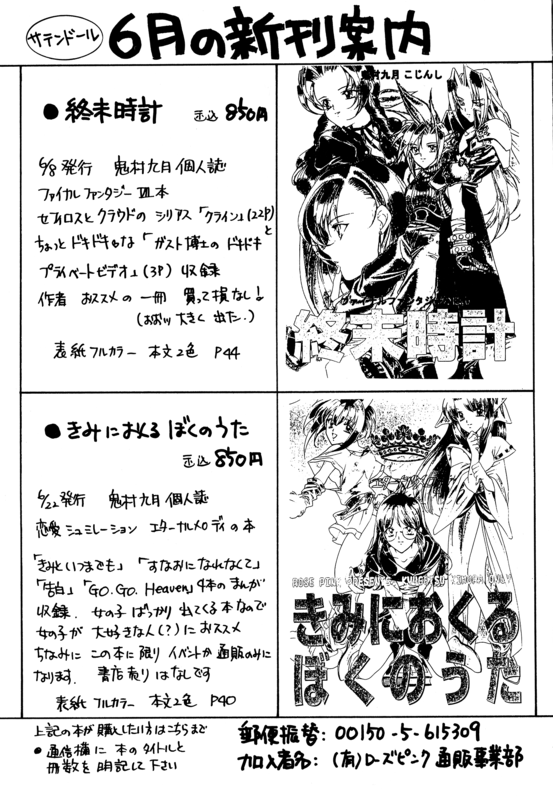 サテンドール
6月の新刊案内
●終末時計 税込 850円
6/8発行 鬼村九月 個人誌
ファイナルファンタジーⅦ本
セフィロスとクラウドの シリアス「クライン」(22P)と
ちょっと ドキドキな「ガスト博士の ドキドキ
プライベートビデオ」(3P) 収録
作者 おススメの 一冊 買って損なし!
(おおッ大きく 出た.)
表紙フルカラー 本文2色 P44
鬼村九月 こじんし
ファイナルファンタジー
終末時計
●きみにおくる ぼくのうた
税込 850円
6/22発行 鬼村九月 個人誌
恋愛シュミレーション エターナルメロディの本
「きみといつまでも」「すなおになれなくて」
「告白」「GO.GO.Heaven」4本のまんが
収録. 女の子 ばっかり 出てくる本なので
女の子が 大好きな人(?)におススメ
ちなみに この本に限り イベントか通販のみに
なります. 書店売りはなしです
表紙フルカラー 本文2色 P40
エターナルメロディ
ROSE PINK PRESENTS
きみにおくる
ぼくのうた
上記の本が購入したい方はこちらまで
●通信欄に 本のタイトルと
冊数を明記して下さい
郵便振替: 00150-5-615309
加入者名: (有)ローズピンク 通販事業部